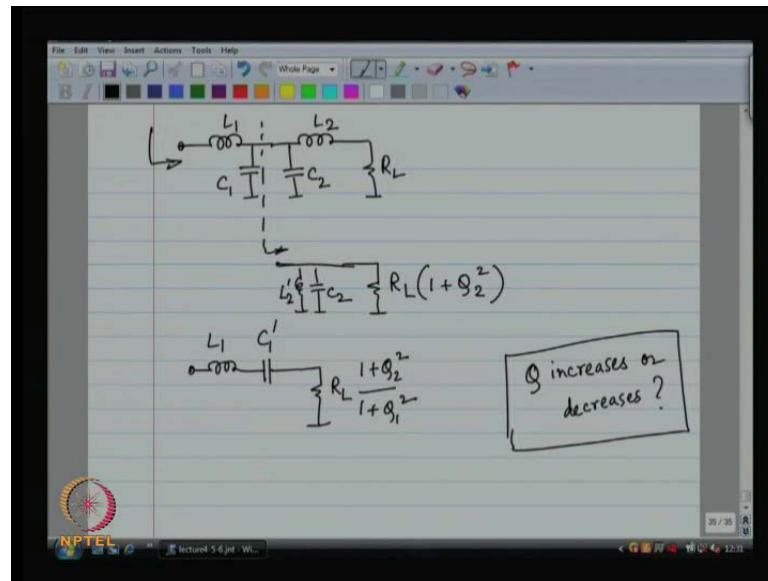 File Edit View Insert Actions Tools Help
Whole Page
B I
L₁ L₂
C₁ C₂ R_L
L₂' C₂ R_L(1+Q₂²)
L₁ C₁' R_L (1+Q₂²)/(1+Q₁²)
Q increases or
decreases?
35 / 35
NPTEL
lecture4-5-6.jnt - Wi...
12:31